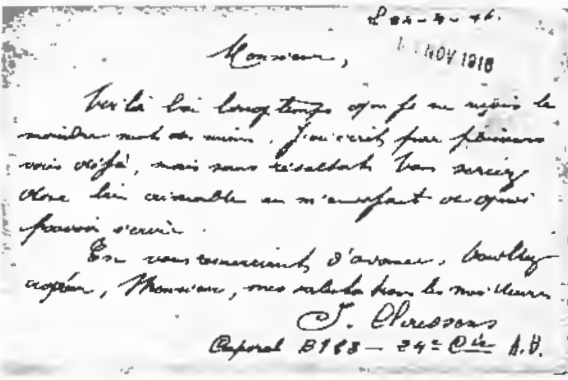 Monsieur,
NOV 1916
Voilà bien longtemps que je ne reçois le
moindre mot des miens. J'ai écrit par plusieurs
voies déjà, mais sans résultat. Vous seriez
donc bien aimable en m'envoyant de quoi
pouvoir écrire.
En vous remerciant d'avance, veuillez
agréer, Monsieur, mes salutations les meilleures
J.
Caporal B188 - 24e Cie